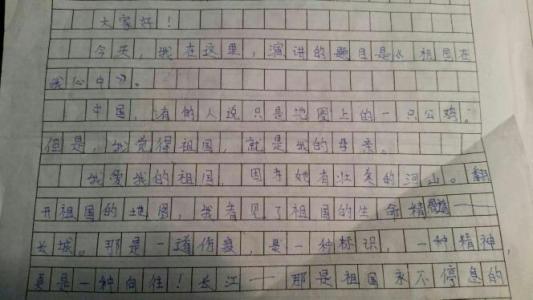 大家好！
今天，我在这里，演讲的题目是《祖国在
我心中》。
中国，有的人说只是地图上的一只公鸡。
但是，我觉得祖国，就是我的母亲。
我爱我的祖国，因为她有壮美的河山。翻
开祖国的地图，我看见了祖国的生命精髓——
长城。那是一道伤疤，是一种标识，一种精神，
更是一种向往！长江——那是祖国永不停息的